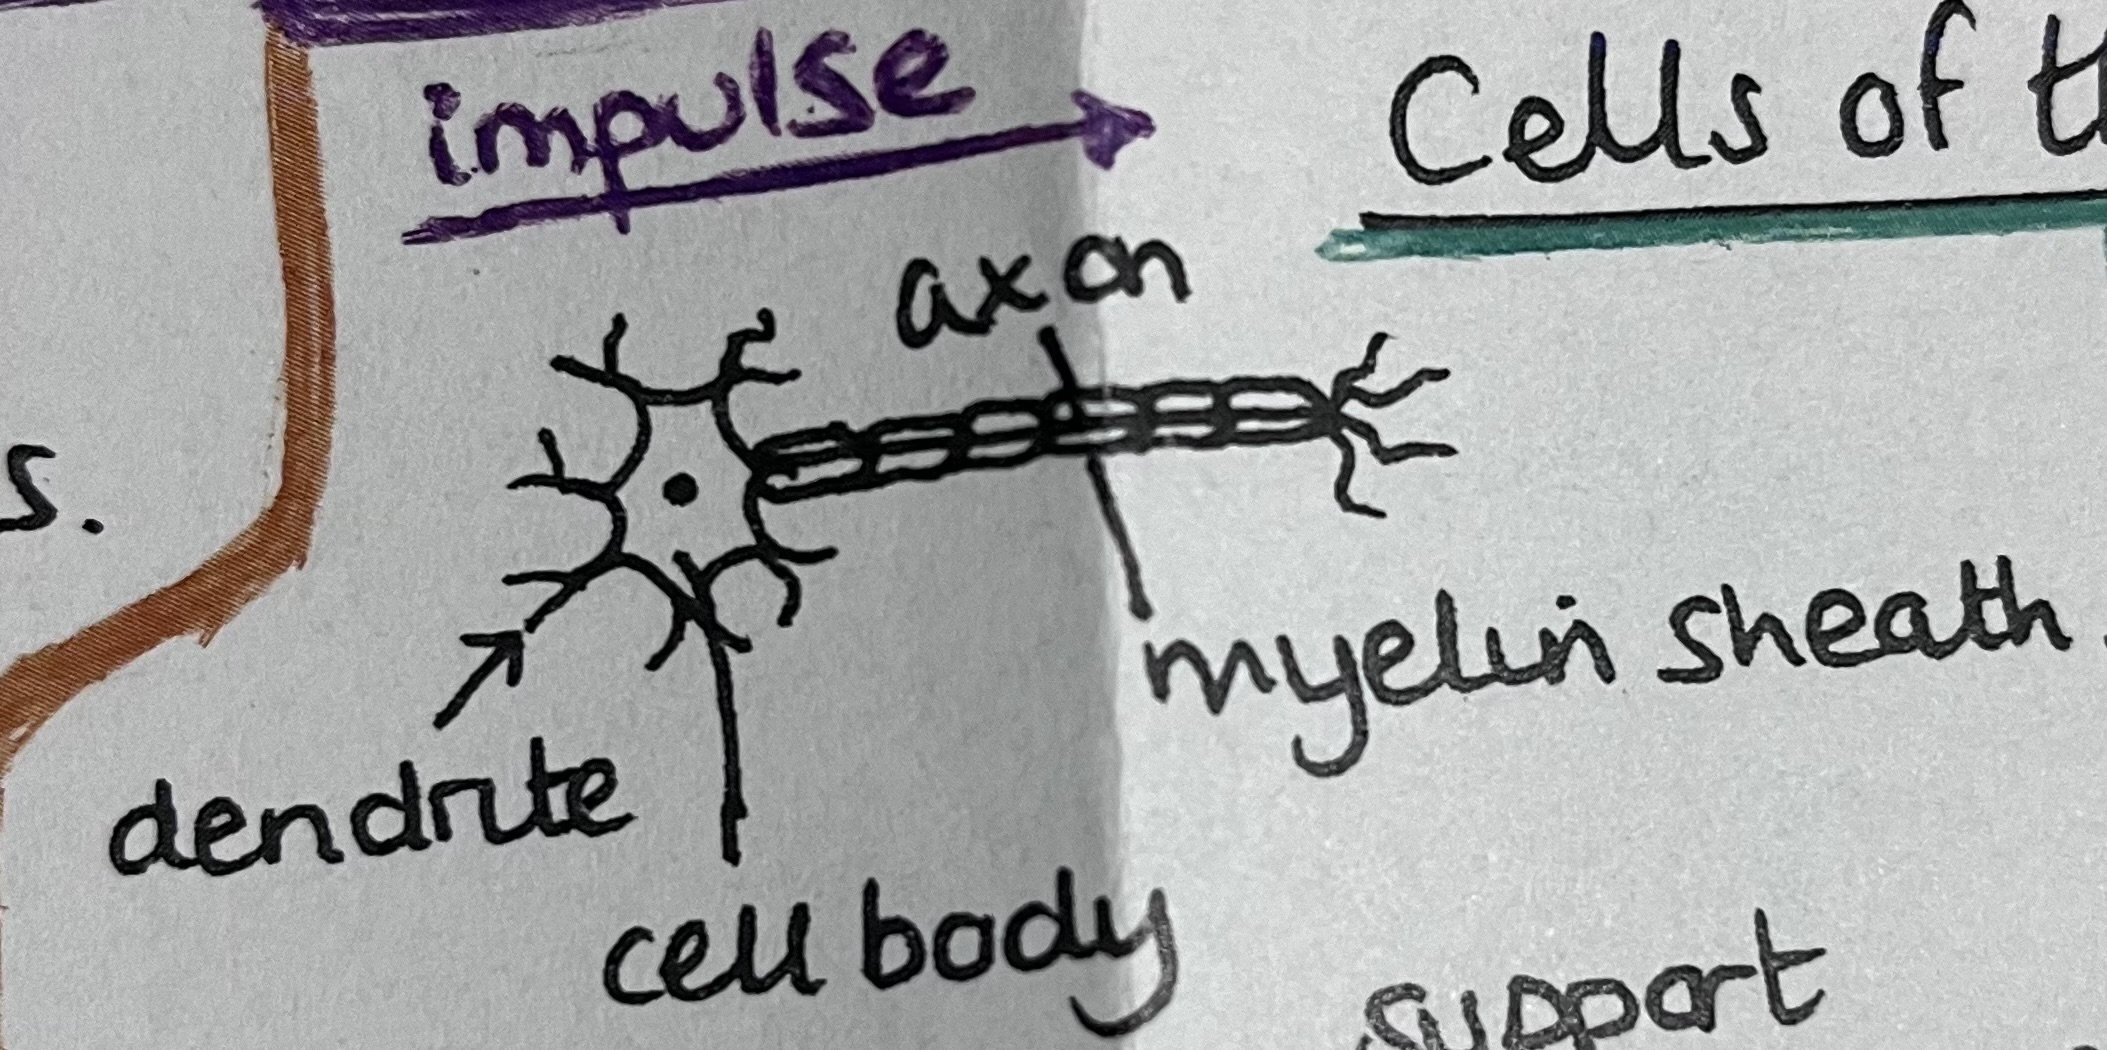 impulse
Cells of t
axon
s.
myelin sheath.
dendrite
cell body
support